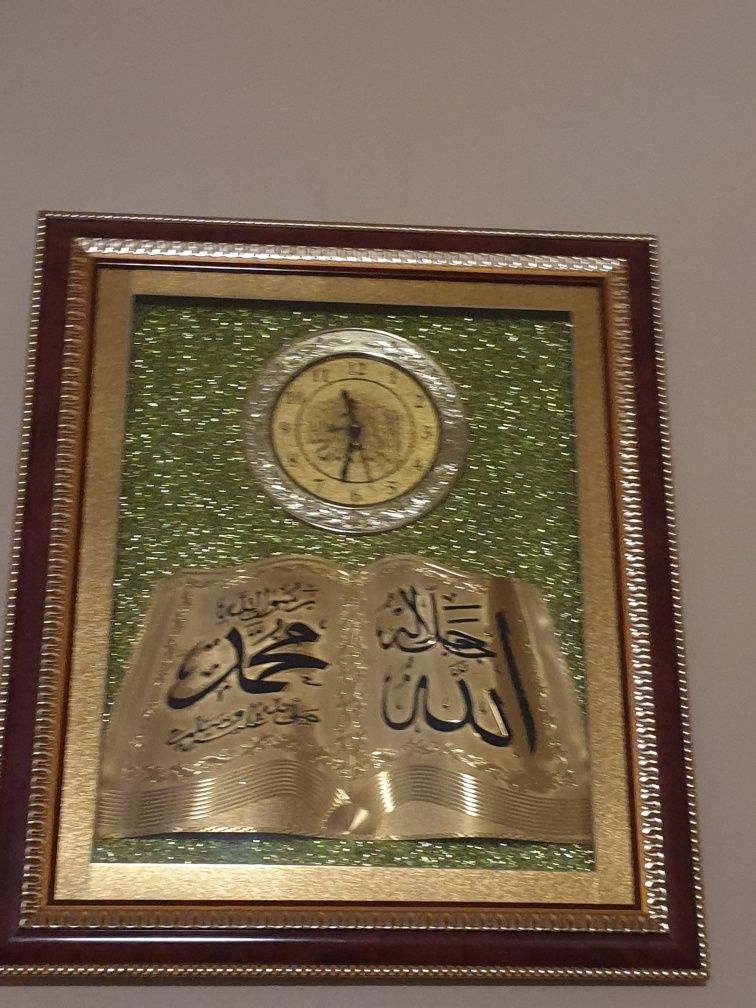 12
1
2
3
4
6
7
8
9
10
11
جل جلاله
الله
رسول الله
محمد
صلى الله عليه وسلم